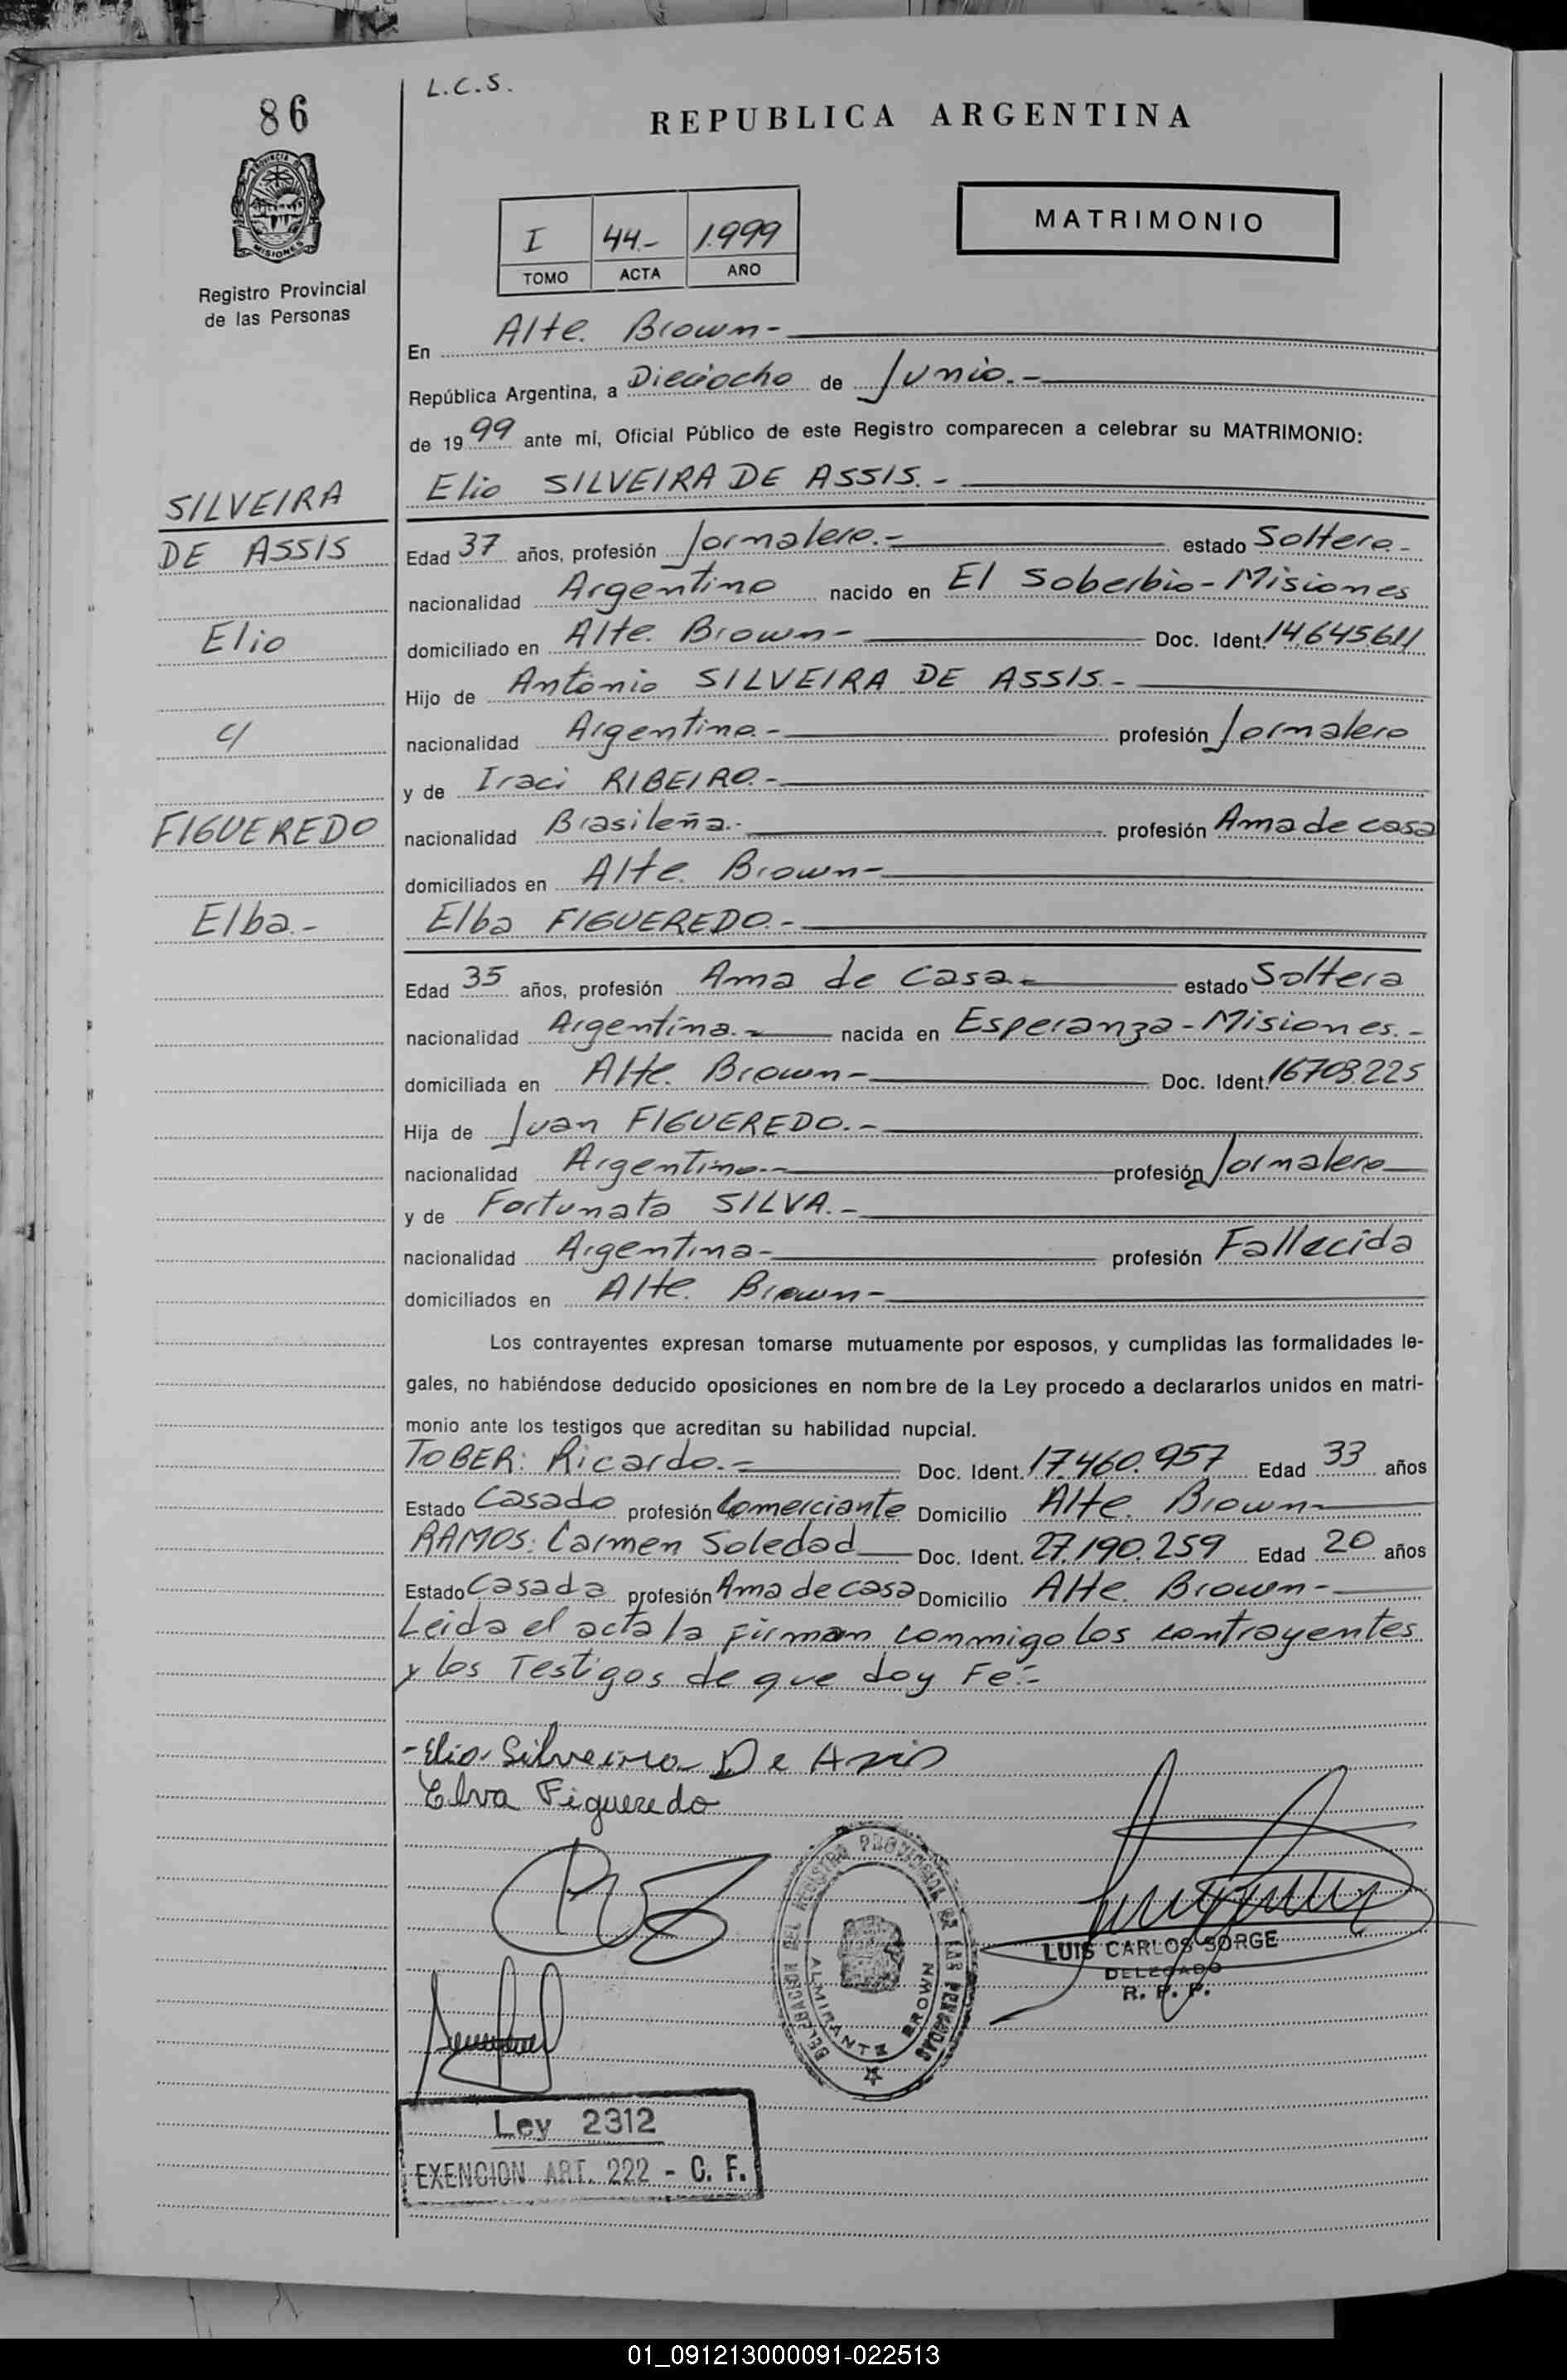 86
L.C.S.
REPUBLICA ARGENTINA
PROVINCIA D
MISIONES
Registro Provincial
de las Personas
I 44.- 1.999
TOMO ACTA AÑO
MATRIMONIO
En Alte. Brown-
República Argentina, a Dieciocho de Junio.-
de 1999 ante mí, Oficial Público de este Registro comparecen a celebrar su MATRIMONIO:
SILVEIRA
DE ASSIS
Elio
c/
FIGUEREDO
Elba.-
Elio SILVEIRA DE ASSIS.-
Edad 37 años, profesión Jornalero.- estado Soltero.-
nacionalidad Argentino nacido en El Soberbio-Misiones
domiciliado en Alte. Brown- Doc. Ident. 14.645.611
Hijo de Antonio SILVEIRA DE ASSIS.-
nacionalidad Argentino.- profesión Jornalero
y de Iraci RIBEIRO.-
nacionalidad Brasileña.- profesión Ama de casa
domiciliados en Alte. Brown-
Elba FIGUEREDO.-
Edad 35 años, profesión Ama de casa.- estado Soltera
nacionalidad Argentina.- nacida en Esperanza-Misiones.-
domiciliada en Alte. Brown- Doc. Ident. 16.703.225
Hija de Juan FIGUEREDO.-
nacionalidad Argentino.- profesión Jornalero
y de Fortunata SILVA.-
nacionalidad Argentina- profesión Fallecida
domiciliados en Alte. Brown-
Los contrayentes expresan tomarse mutuamente por esposos, y cumplidas las formalidades le-
gales, no habiéndose deducido oposiciones en nombre de la Ley procedo a declararlos unidos en matri-
monio ante los testigos que acreditan su habilidad nupcial.
TOBER: Ricardo.- Doc. Ident. 17.460.957 Edad 33 años
Estado Casado profesión Comerciante Domicilio Alte. Brown-
RAMOS: Carmen Soledad Doc. Ident. 27.190.259 Edad 20 años
Estado Casada profesión Ama de casa Domicilio Alte. Brown-
Leida el acta la firman conmigo los contrayentes
y los Testigos de que doy Fe.-
-Elio Silveira De Assis
Elva Figueredo
DELEGACION DEL REGISTRO PROVINCIAL DE LAS PERSONAS
ALMIRANTE BROWN
LUIS CARLOS SORGE
DELEGADO
R. P. P.
Ley 2312
EXENCION ART. 222 - C. F.
01_091213000091-022513